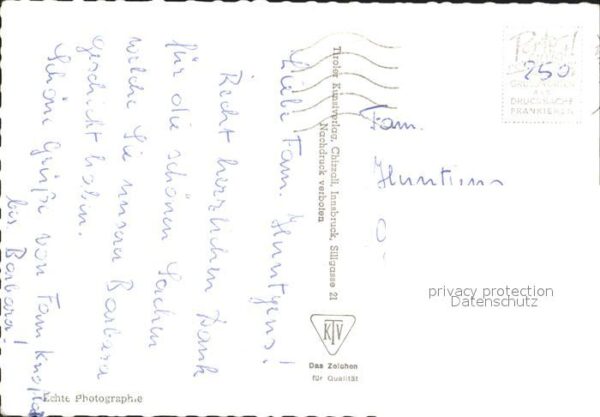 Liebe Fam. Huntgens!
Recht herzlichen Dank
für die schönen Sachen
welche Sie unserer Barbara
geschickt haben.
Schöne Grüße von Fam.
bis Barbara!
Tiroler Kunstverlag, Chizzali, Innsbruck, Sillgasse 21
Nachdruck verboten
Porto!
250.
DRUCKSACHE
FRANKIEREN
Fam.
privacy protection
Datenschutz
KTV
Das Zeichen
für Qualität
Echte Photographie